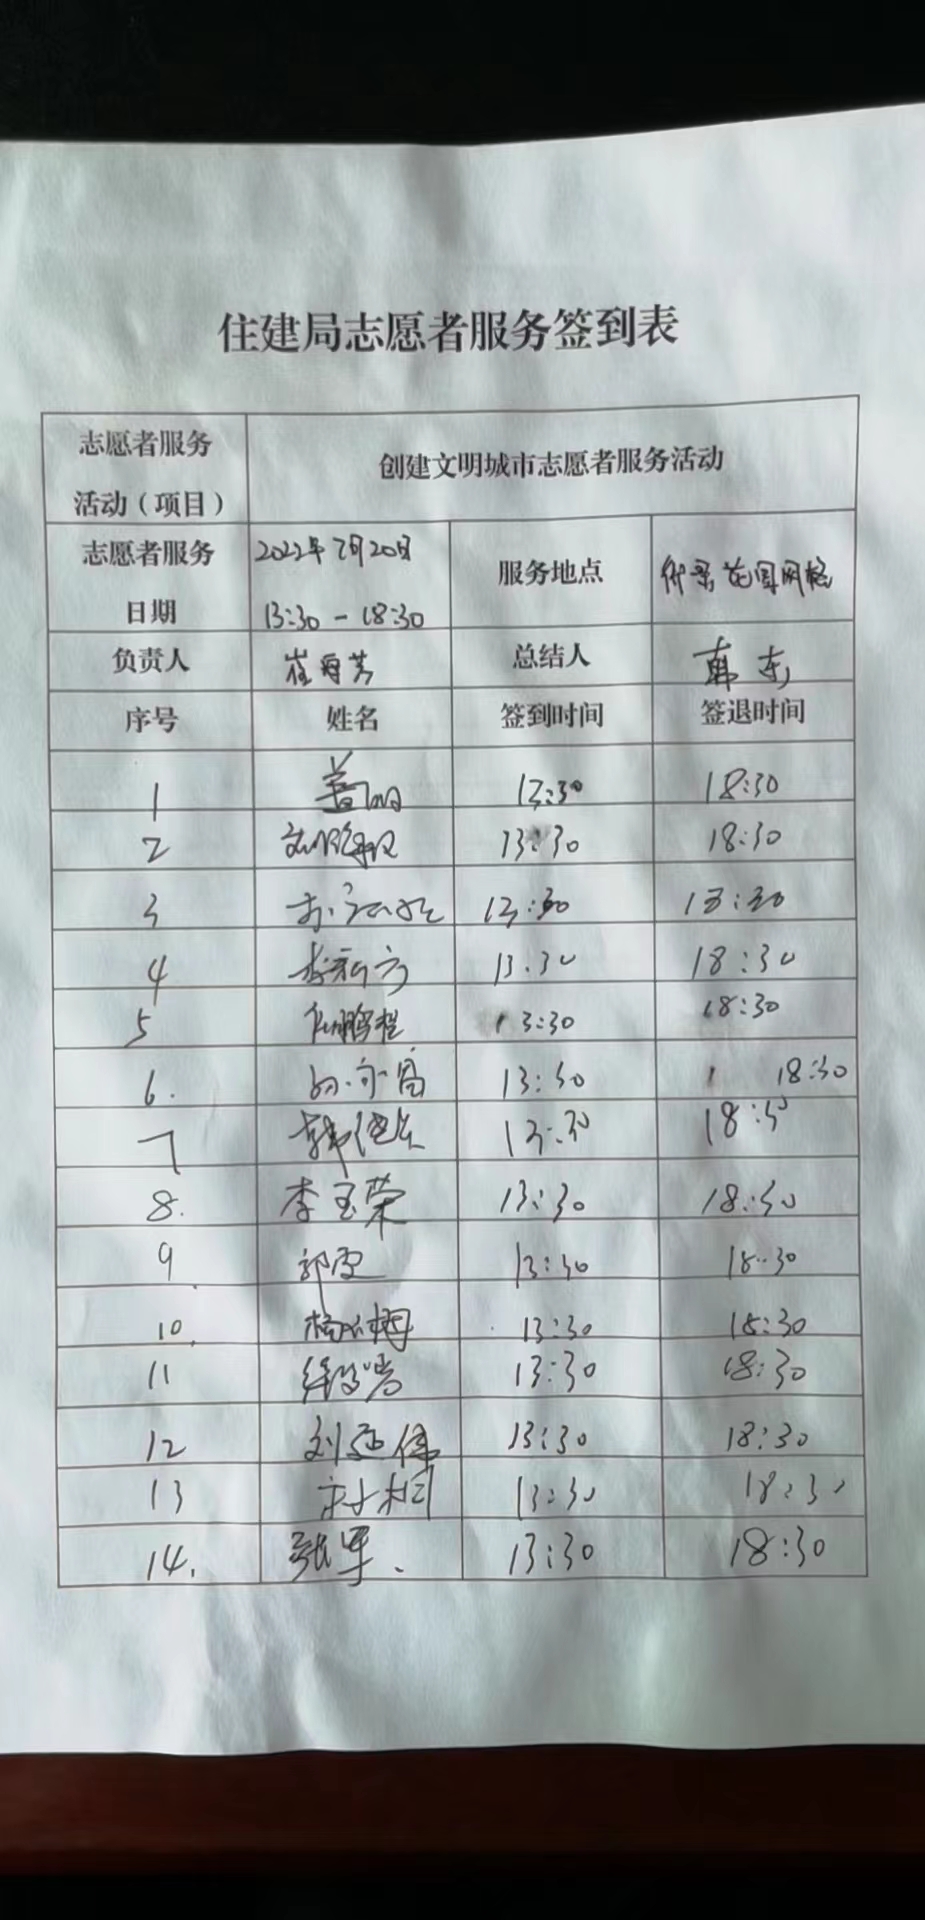 住建局志愿者服务签到表
志愿者服务
活动（项目）
创建文明城市志愿者服务活动
志愿者服务
日期
2022年7月20日
13:30-18:30
服务地点
花园网格
负责人
崔海芳
总结人
韩东
序号 姓名 签到时间 签退时间
1 13:30 18:30
2 13:30 18:30
3 13:30 18:30
4 李新方 13:30 18:30
5 任鹏程 13:30 18:30
6. 13:30 18:30
7 13:30 18:30
8. 李玉荣 13:30 18:30
9 13:30 18:30
10. 13:30 18:30
11 13:30 18:30
12 刘延伟 13:30 18:30
13 13:30 18:30
14. 张军. 13:30 18:30